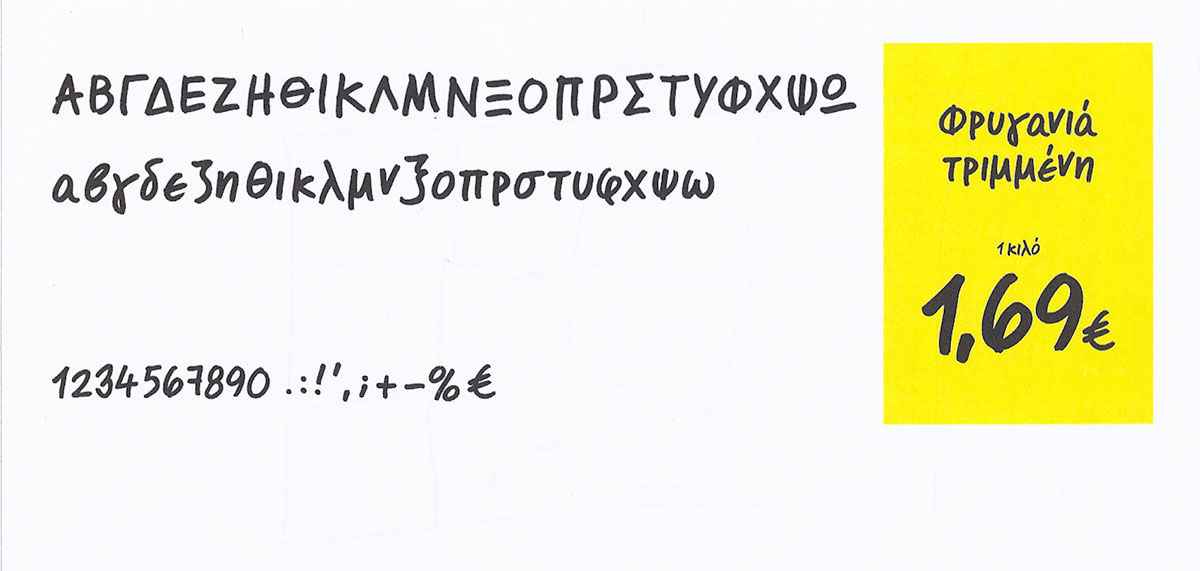 ΑΒΓΔΕΖΗΘΙΚΛΜΝΞΟΠΡΣΤΥΦΧΨΩ
αβγδεζηθικλμνξοπρστυφχψω
1234567890 .:!',;+-%€
Φρυγανιά
τριμμένη
1 κιλό
1,69€